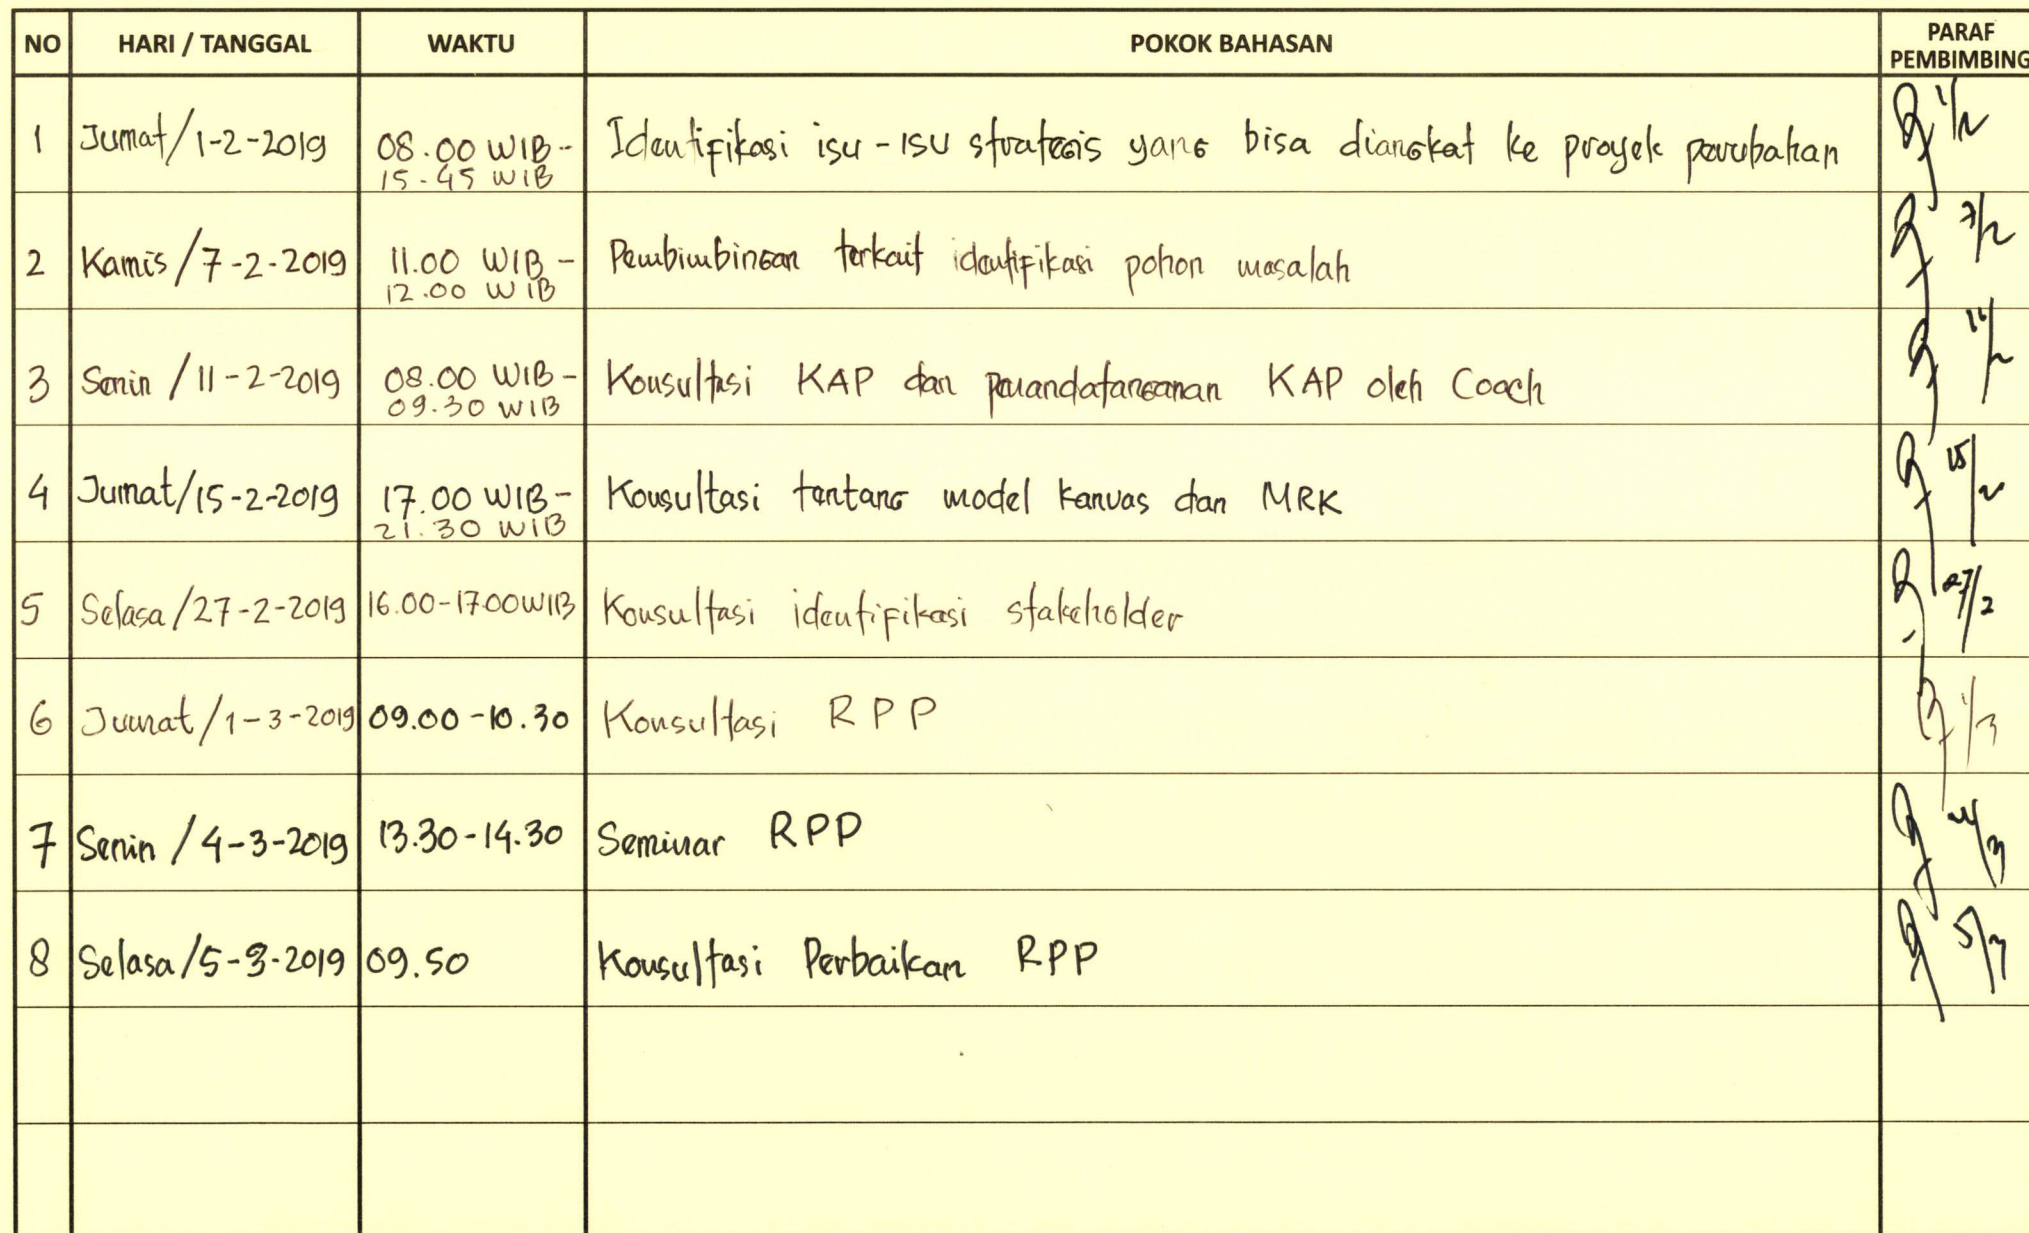 NO HARI / TANGGAL WAKTU POKOK BAHASAN PARAF PEMBIMBING
1 Jumat/1-2-2019 08.00 WIB - Identifikasi isu-isu strategis yang bisa diangkat ke proyek perubahan 1/2
15.45 WIB
2 Kamis/7-2-2019 11.00 WIB - Pembimbingan terkait identifikasi pohon masalah 7/2
12.00 WIB
3 Senin/11-2-2019 08.00 WIB - Konsultasi KAP dan penandatanganan KAP oleh Coach 11/2
09.30 WIB
4 Jumat/15-2-2019 17.00 WIB - Konsultasi tentang model kanvas dan MRK 15/2
21.30 WIB
5 Selasa/27-2-2019 16.00-17.00 WIB Konsultasi identifikasi stakeholder 27/2
6 Jumat/1-3-2019 09.00-10.30 Konsultasi RPP 1/3
7 Senin/4-3-2019 13.30-14.30 Seminar RPP 4/3
8 Selasa/5-3-2019 09.50 Konsultasi Perbaikan RPP 5/3